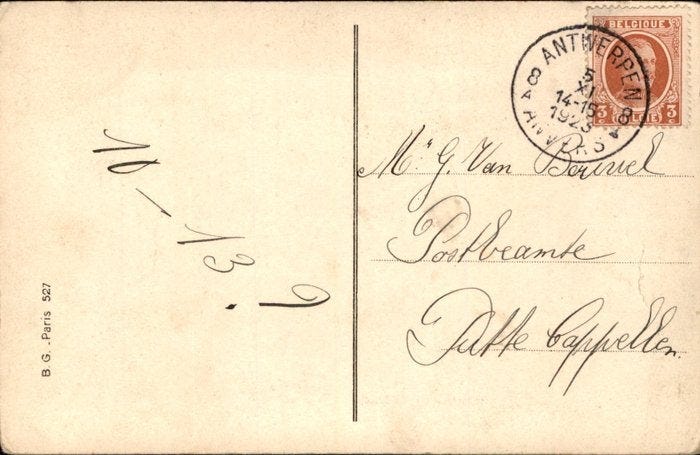 BELGIQUE
3 3
BELGIË
ANTWERPEN
5
XI
14-15
1923
8 8
A
ANVERS
Mr G. Van
Postbeamte
Putte Cappellen.
10 - 13
B. G. . Paris 527